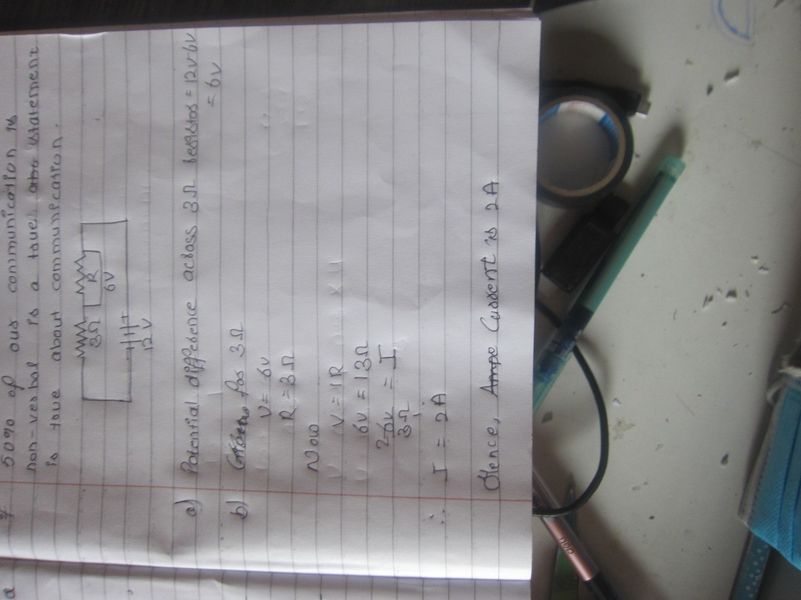 50% of our communication is
non-verbal is a true statement
is true about communication.
3Ω R
6V
12V
a) Potential difference across 3Ω resistor = 12V-6V
= 6V
b) for 3Ω
V = 6V
R = 3Ω
Now
V = IR
6V = I3Ω
2 6V = I
3Ω
∴ I = 2A
Hence, Current is 2A